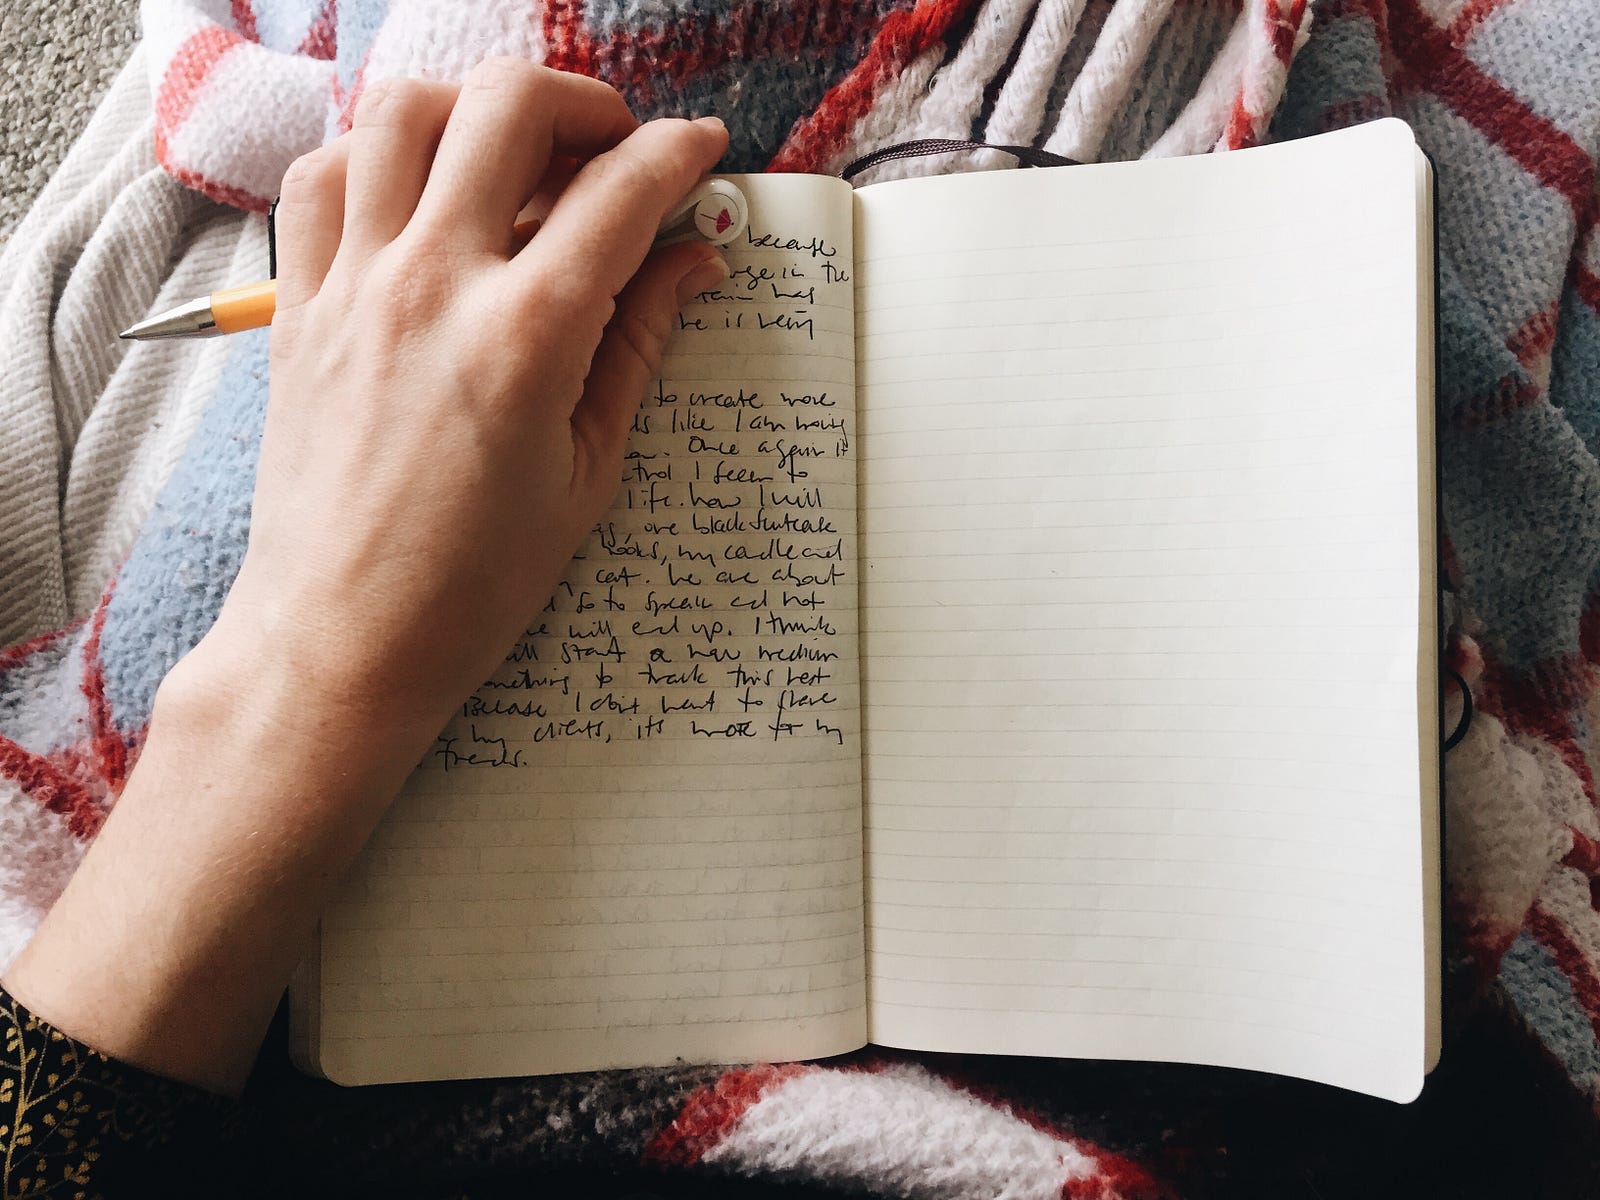 because
in the
has
is very
to create more
like I am moving
Once again it
I seem to
life. how I will
one black suitcase
books, my candle and
cat. We are about
so to speak and not
will end up. I think
start a new medium
something to track this next
Because I don't want to share
my clients, its more for my
friends.